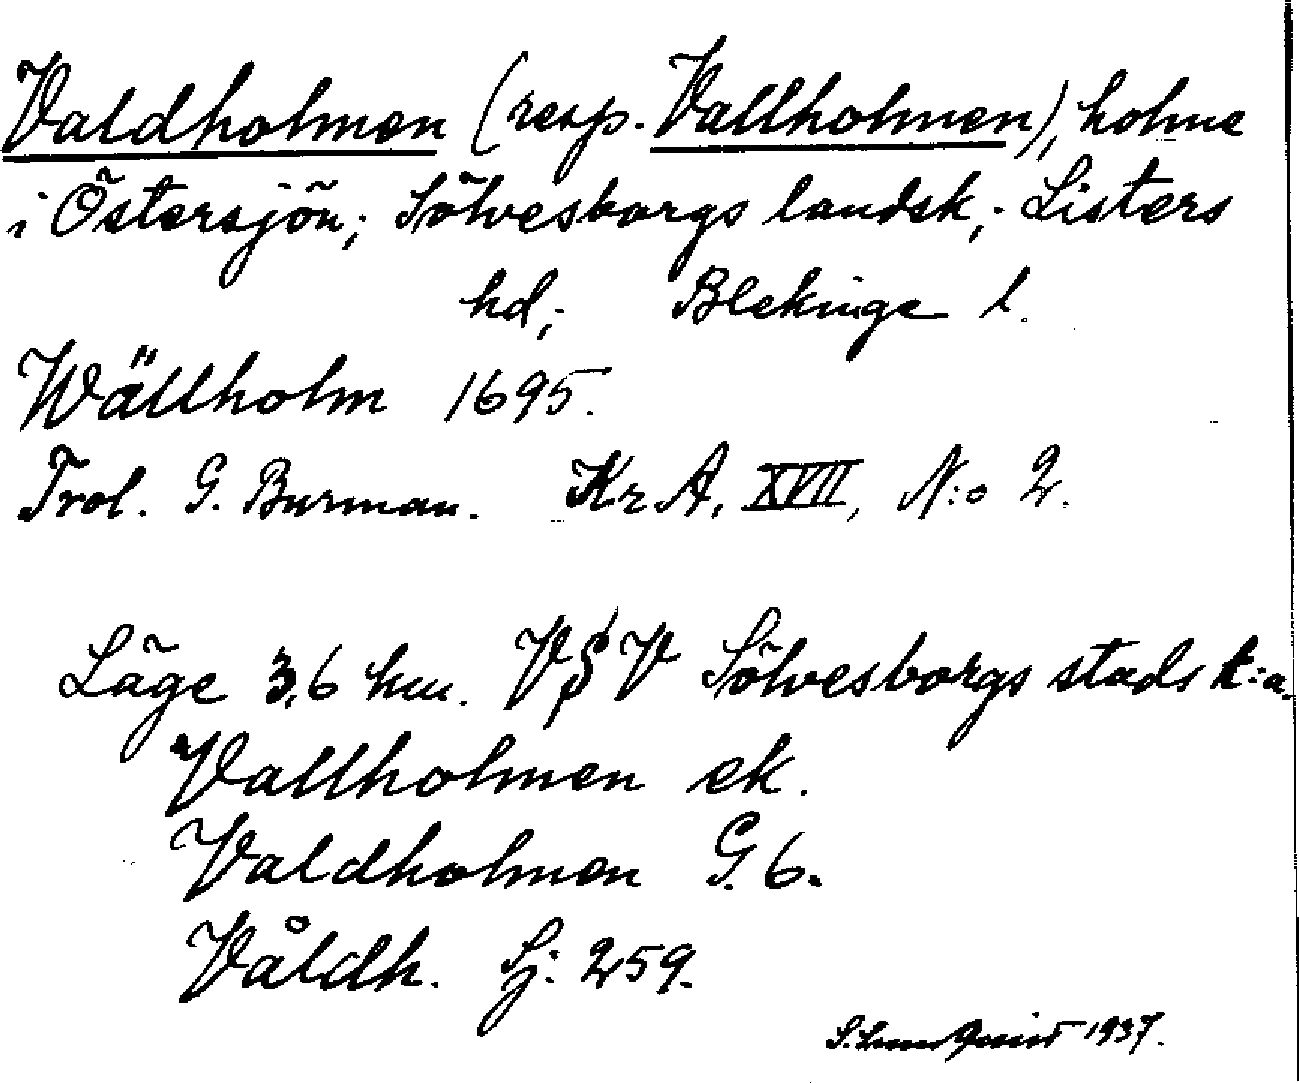 Valdholmen (resp. Vallholmen), holme
i Östersjön; Sölvesborgs landsk.; Listers
hd; Blekinge l.
Wällholm 1695.
Trol. G. Burman. Kr A. XVII, N:o 2.
Läge 3,6 km. VSV Sölvesborgs stads k:a.
Vallholmen ek.
Valdholmen G. 6.
Våldh. Sj: 259.
1937.